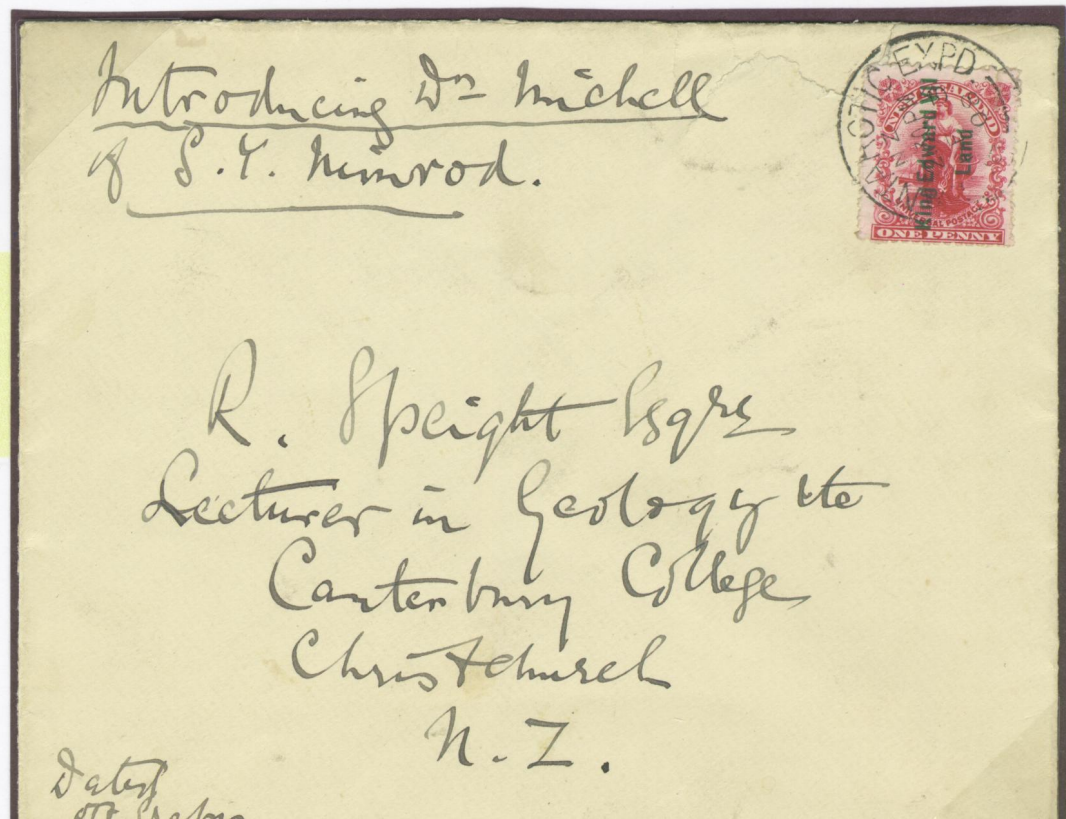 Introducing Dr Michell
of S.Y. Nimrod.
EXPD
NEW ZEALAND
King Edward VII
Land
UNIVERSAL POSTAGE
ONE PENNY
R. Speight Esqre
Lecturer in Geology etc
Canterbury College
Christchurch
N.Z.
Dated
off